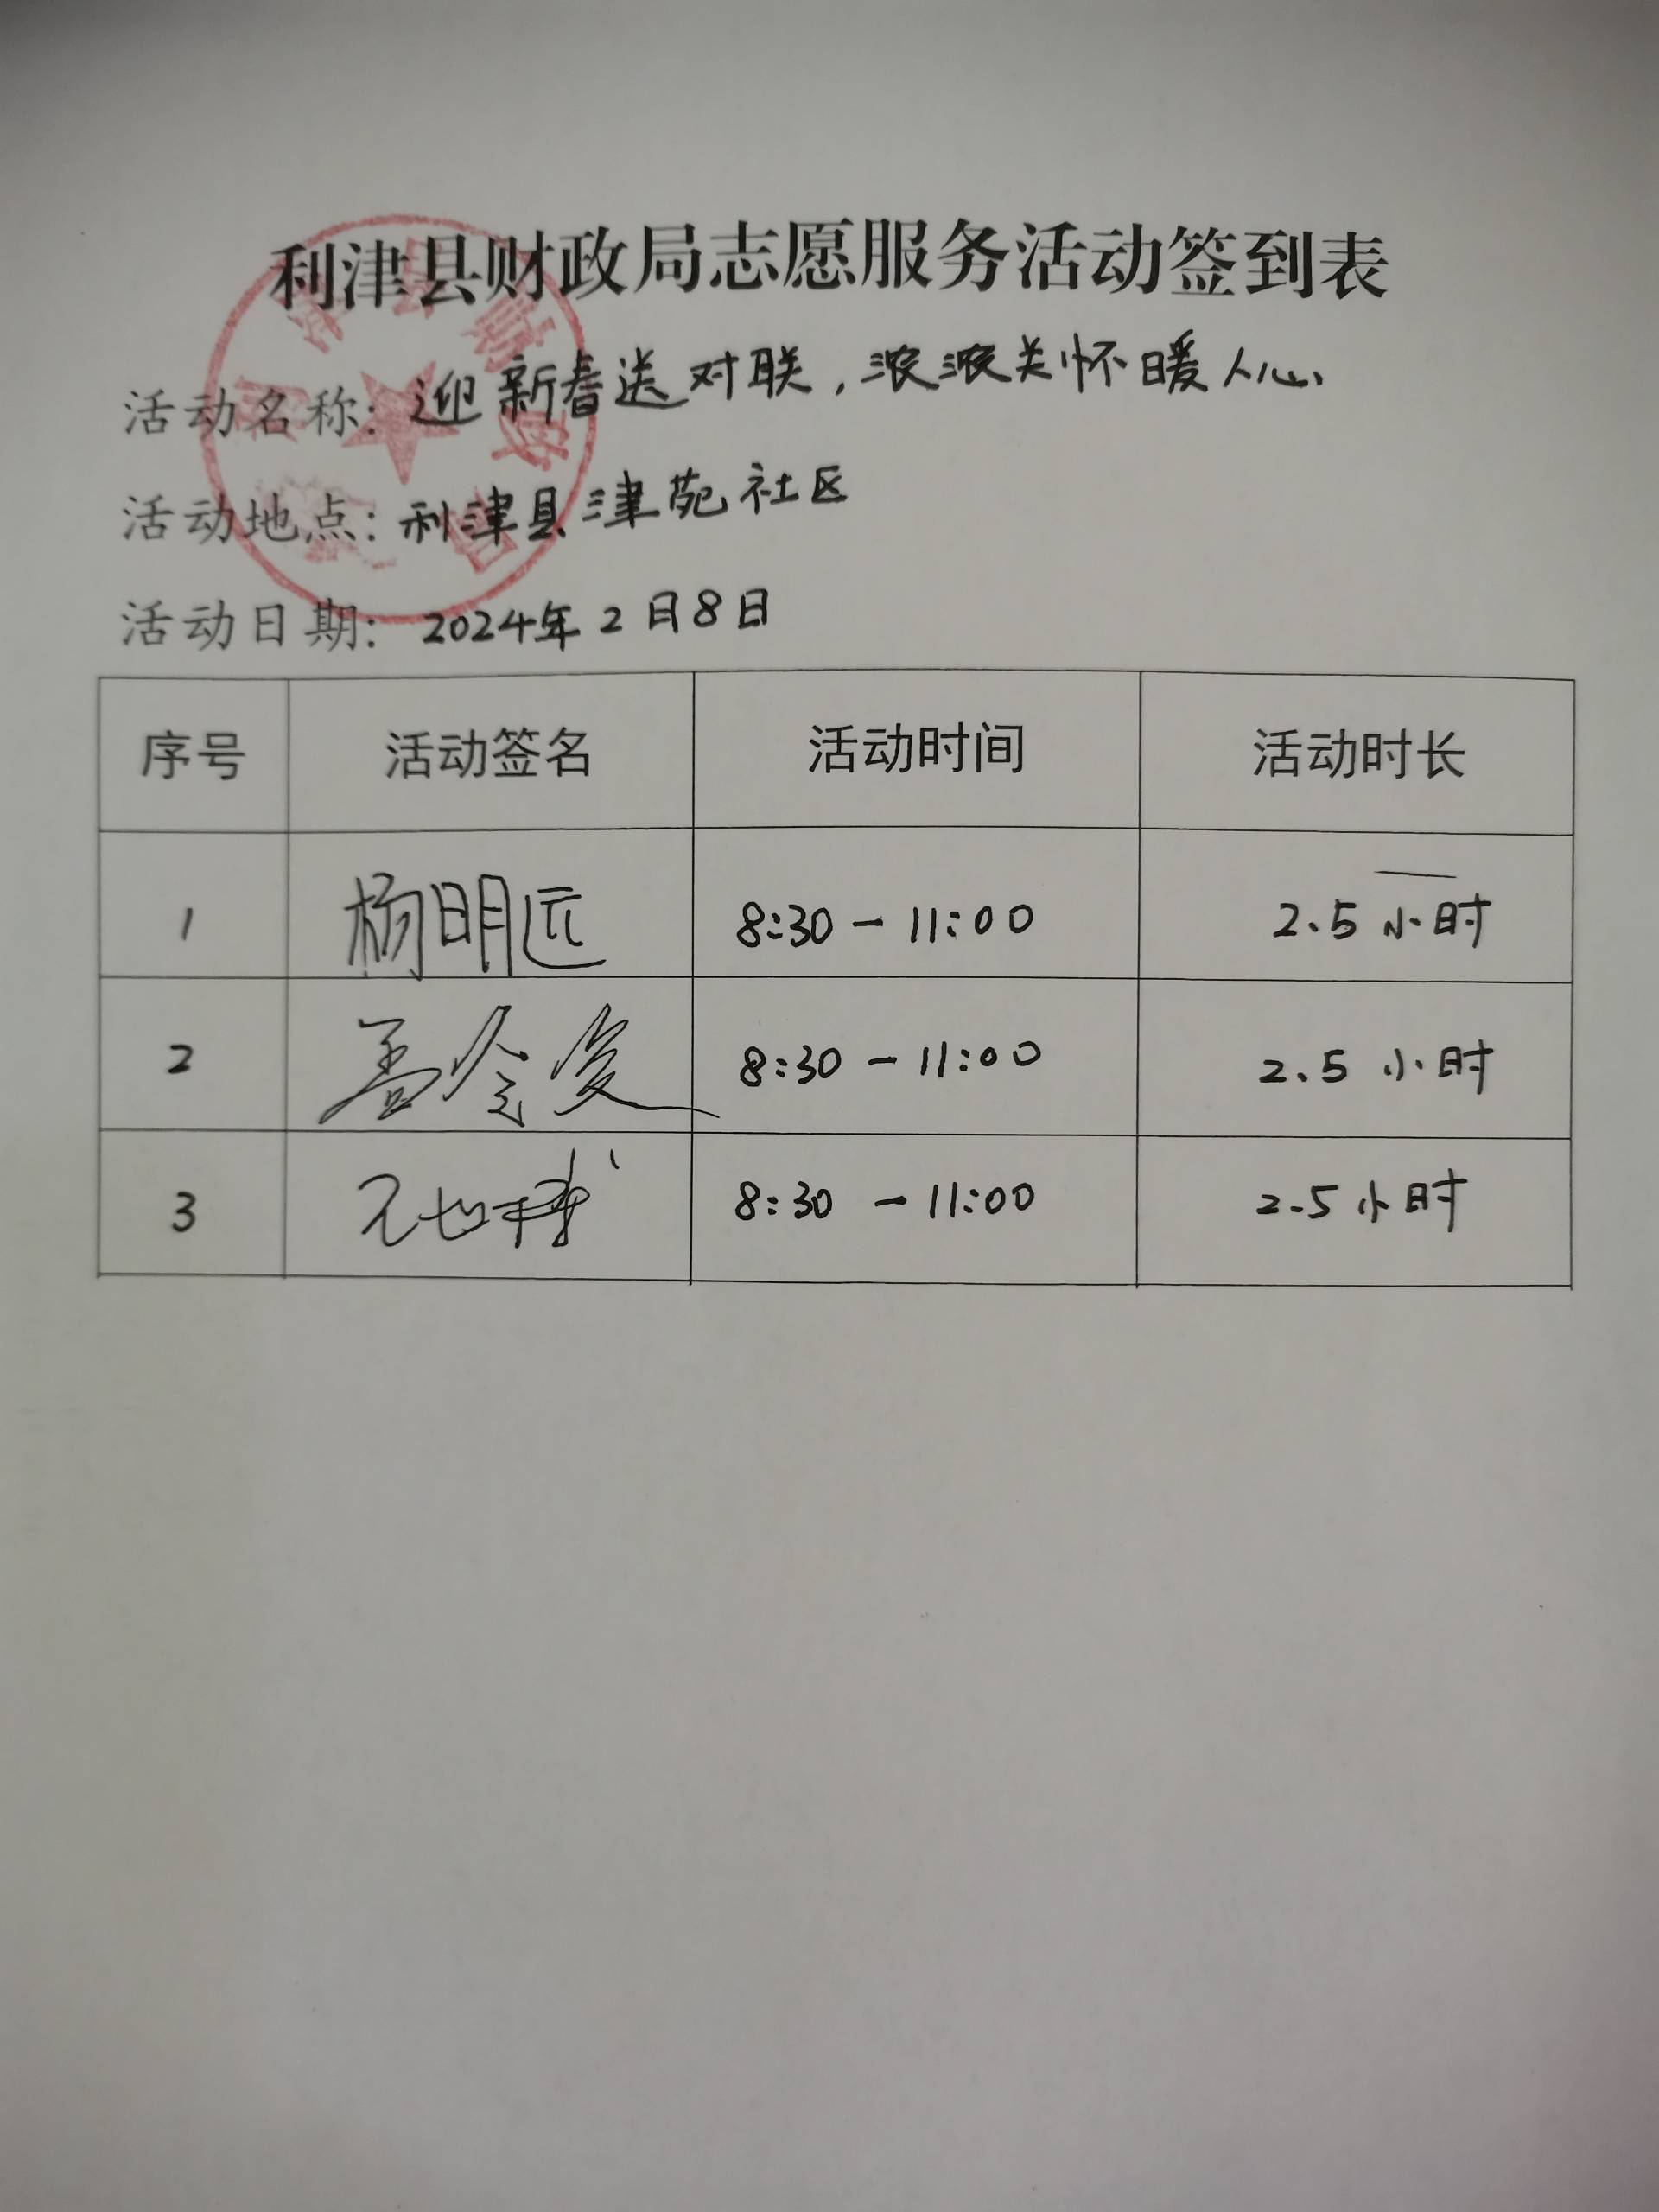 利津县财政局志愿服务活动签到表
活动名称：迎新春送对联，浓浓关怀暖人心
活动地点：利津县津苑社区
活动日期：2024年2月8日
序号 活动签名 活动时间 活动时长
1 杨明远 8:30－11:00 2.5小时
2 孟令俊 8:30－11:00 2.5小时
3 8:30－11:00 2.5小时